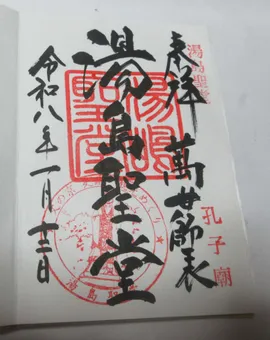 奉拝 萬世師表
湯島聖堂
令和八年一月十三日
湯島聖堂
孔子廟
湯島聖堂